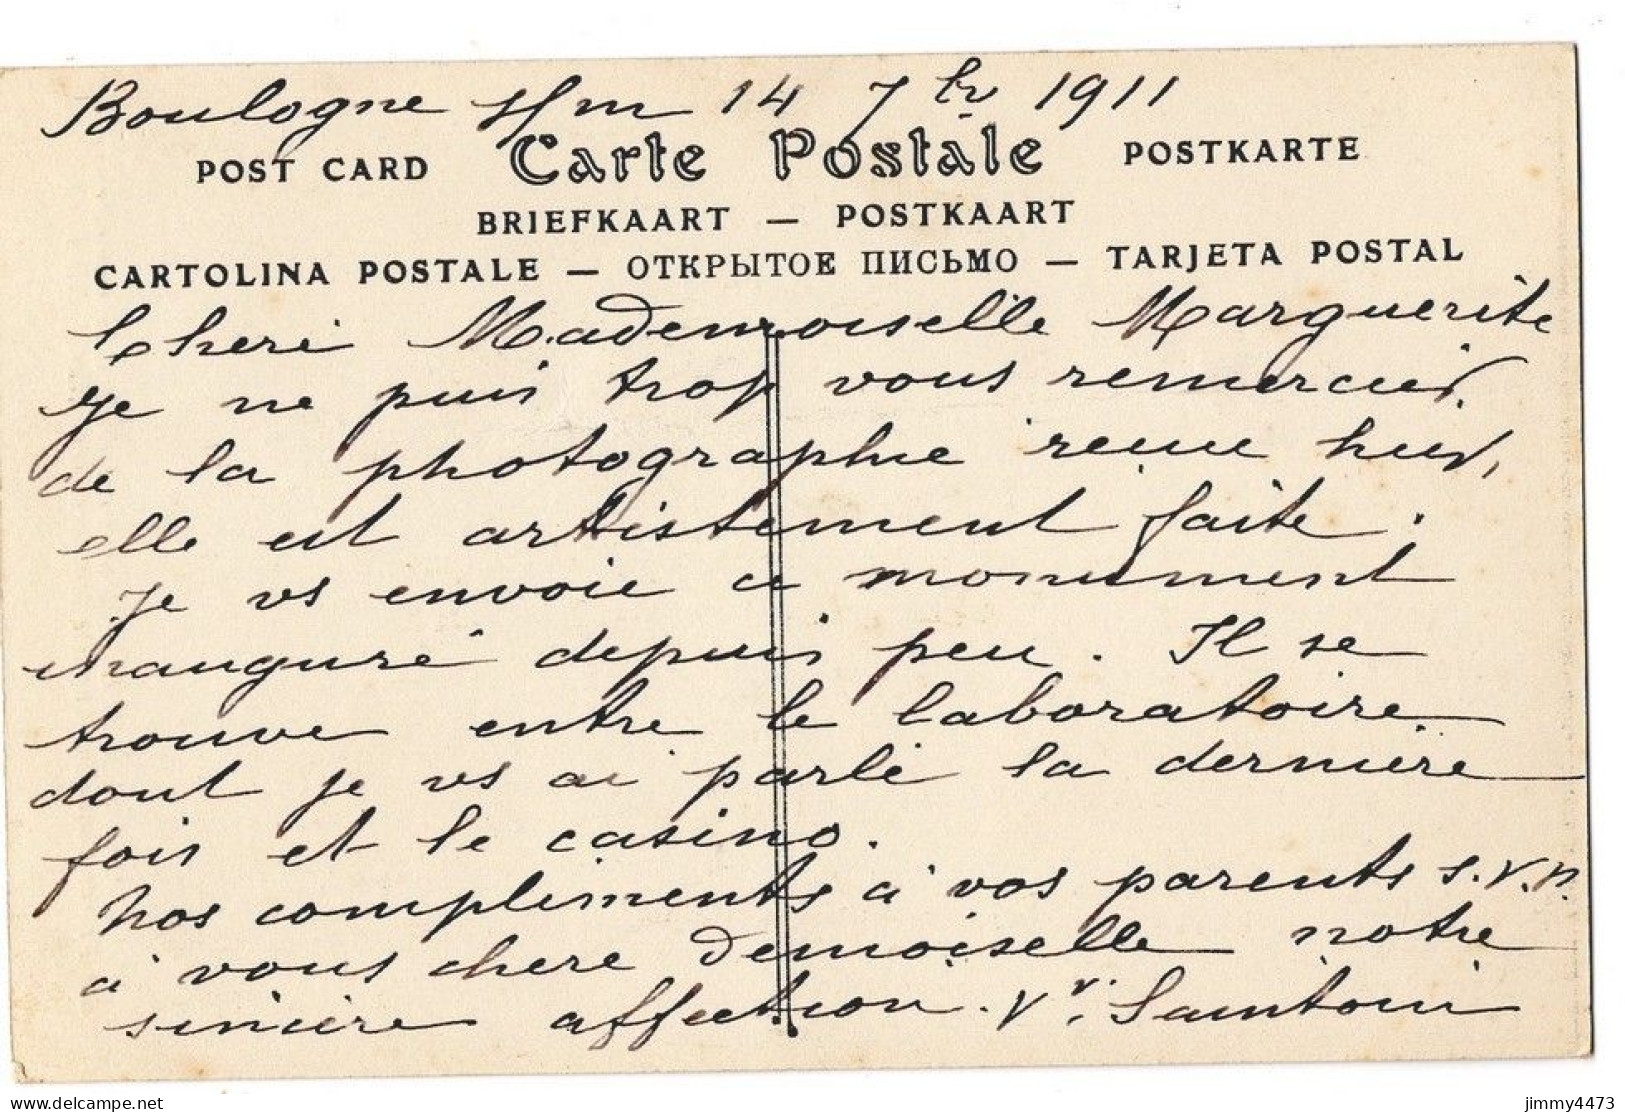 Boulogne s/m 14 7bre 1911
POST CARD Carte Postale POSTKARTE
BRIEFKAART — POSTKAART
CARTOLINA POSTALE — ОТКРЫТОЕ ПИСЬМО — TARJETA POSTAL
Cheri Mademoiselle Marguerite
Je ne puis trop vous remercier
de la photographie reçue hier,
elle est artistement faite.
Je vs envoie ce monument
inauguré depuis peu. Il se
trouve entre le laboratoire
dont je vs ai parlé la dernière
fois et le casino.
Nos compliments à vos parents s.v.p.
à vous chere Demoiselle notre
sincère affection.
delcampe.net
jimmy4473